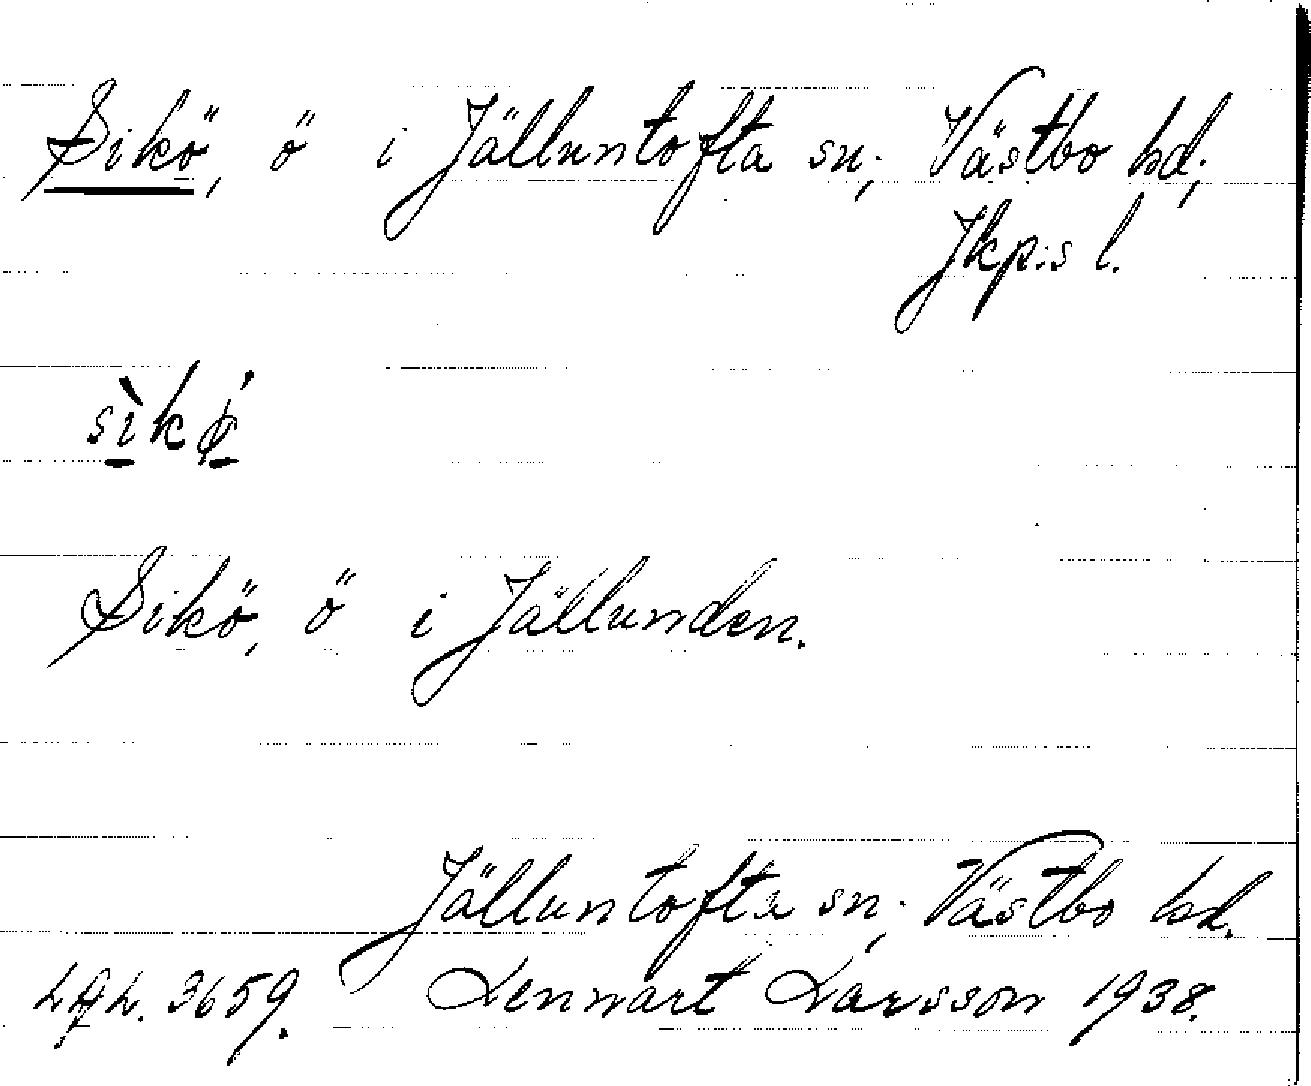 Sikö, ö i Jälluntofta sn; Västbo hd;
Jkp:s l.
sìkǿ
Sikö, ö i Jällunden.
Jälluntofta sn; Västbo hd.
3659. Lennart Larsson 1938.